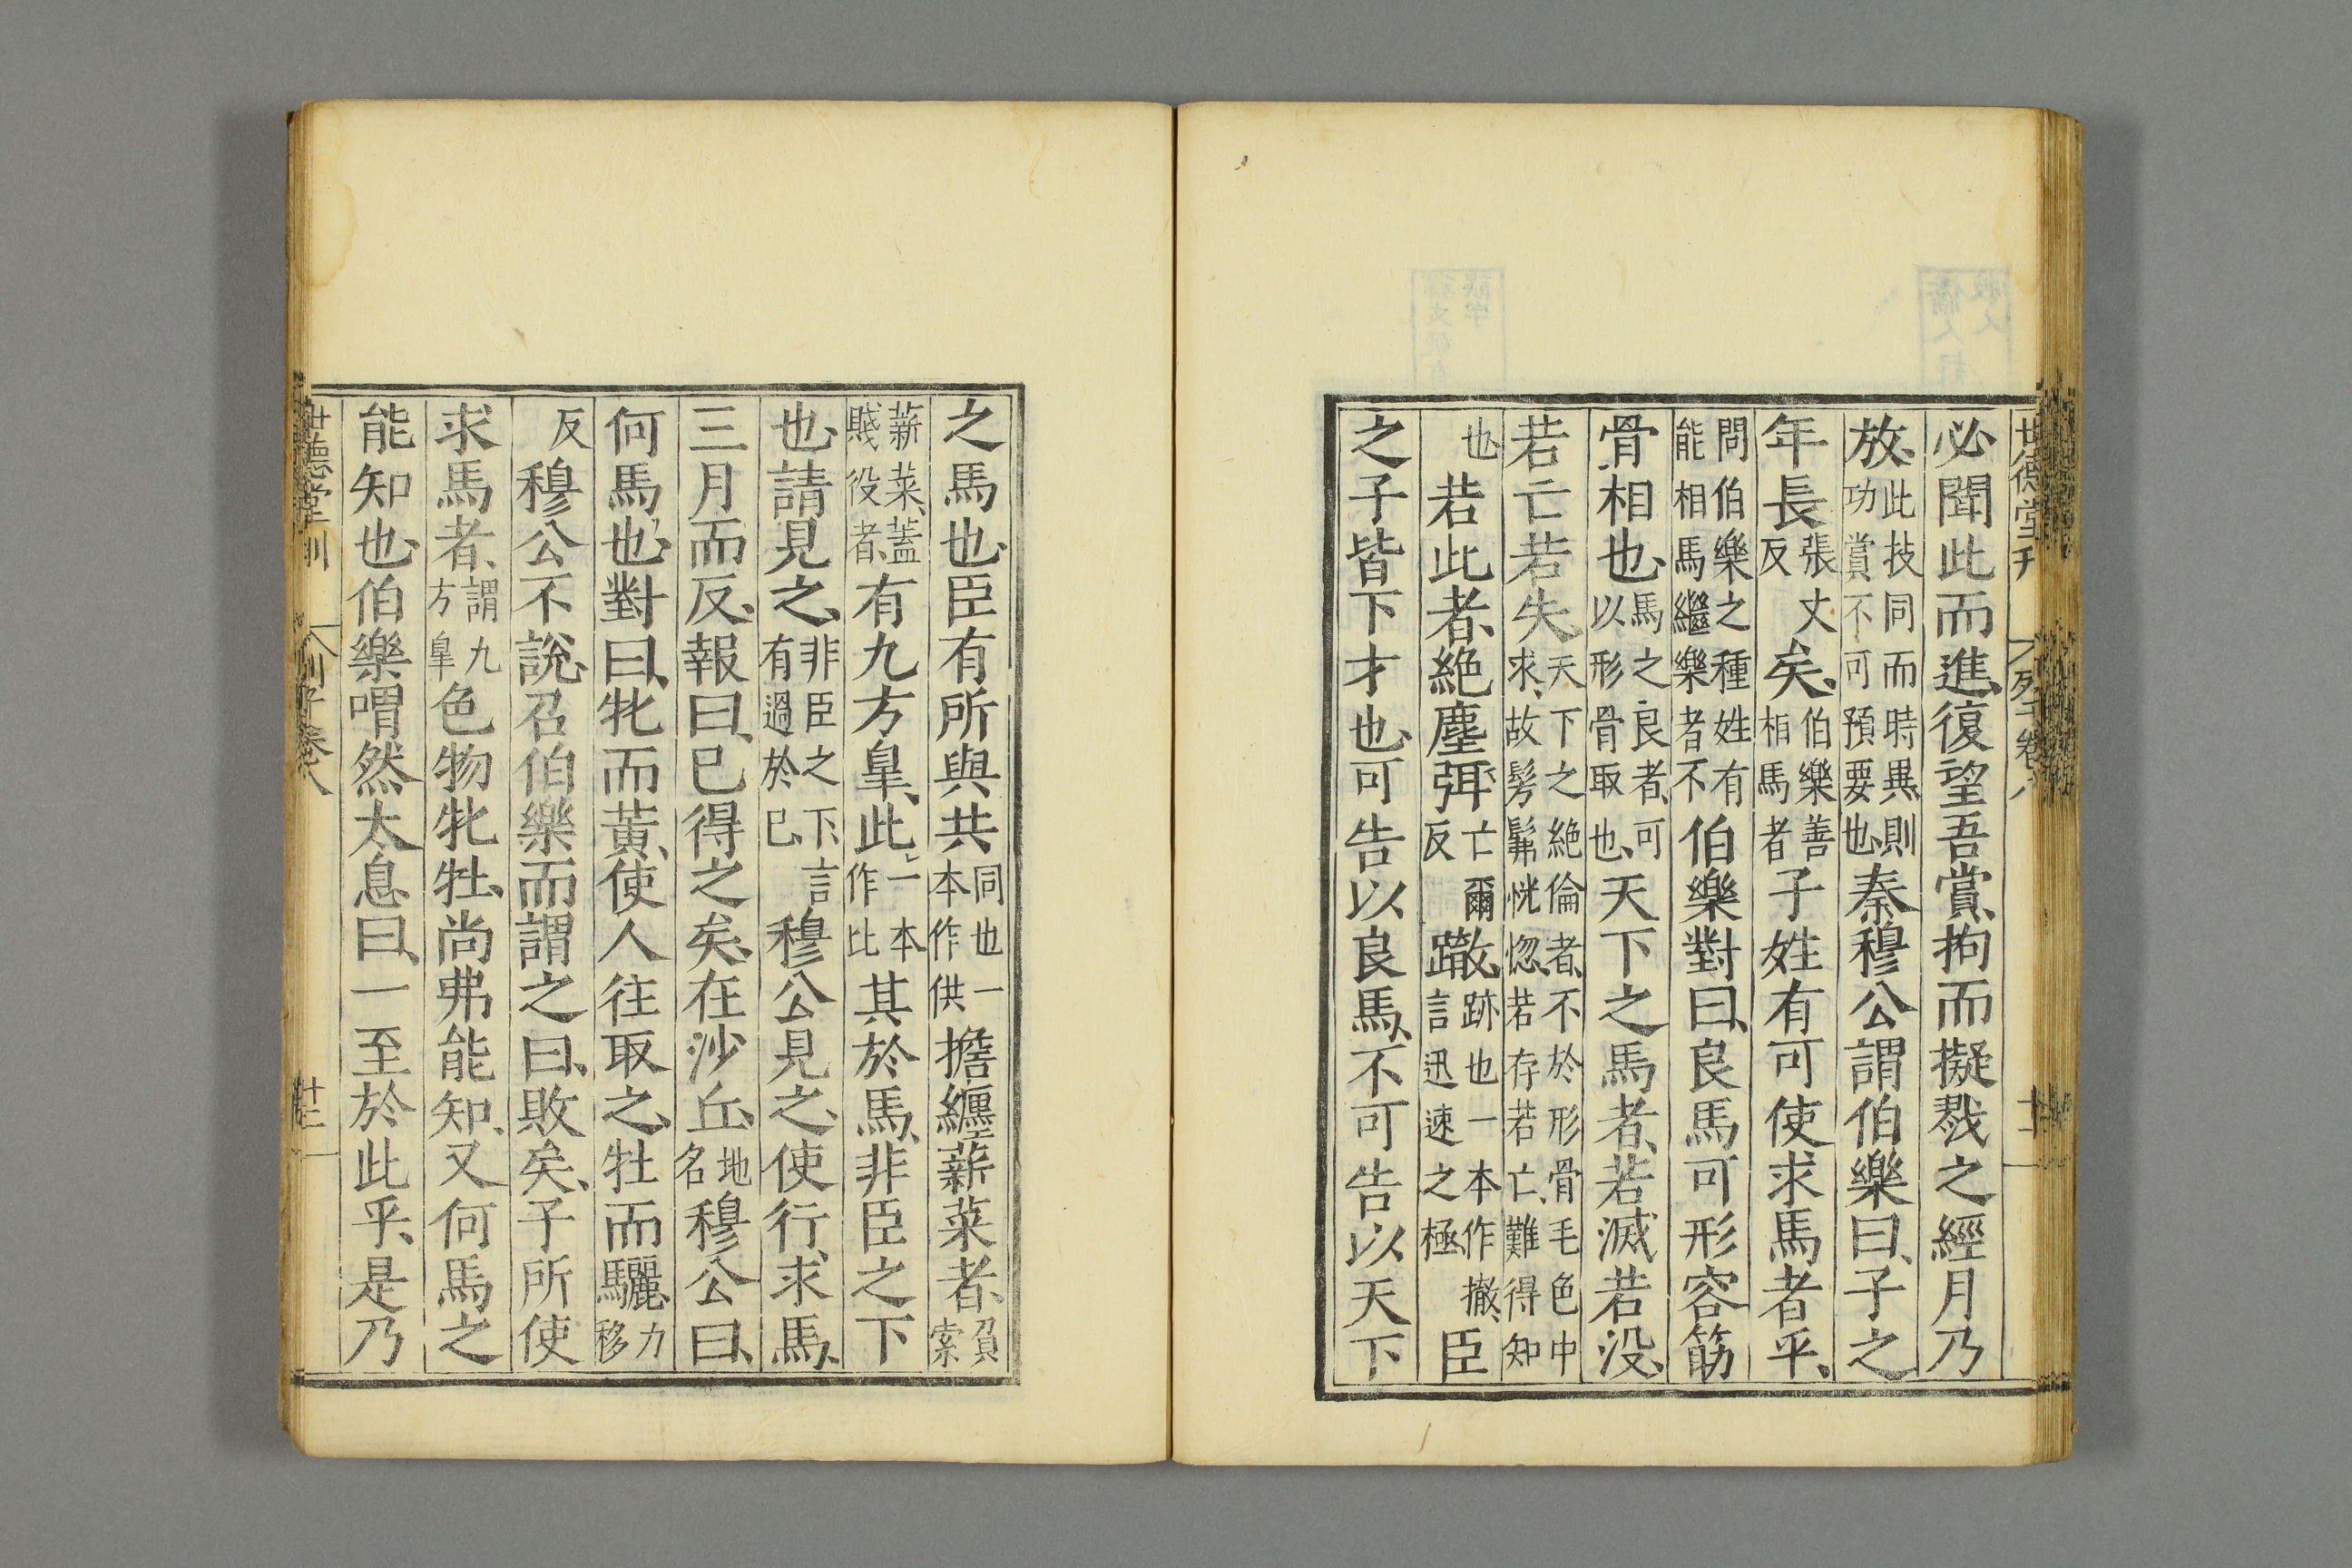 世德堂刊 列子卷八 十二
必聞此而進、復望吾賞、拘而擬戮之經月乃
放、此技同而時異、則功賞不可預要也、秦穆公謂伯樂曰、子之
年長張丈反矣、伯樂善相馬者子姓有可使求馬者乎、
問伯樂之種姓有能相馬繼樂者不伯樂對曰、良馬可形容筋
骨相也、馬之良者、可以形骨取也、天下之馬者、若滅若没、
若亡若失、天下之絶倫者、不於形骨毛色中求、故髣髴恍惚、若存若亡、難得知
也、若此者、絶塵弭亡爾反𨅊、跡也一本作撤、言迅速之極臣
之子皆下才也、可告以良馬、不可告以天下
之馬也、臣有所與共同也一本作供擔纆薪菜者、負索
薪菜、蓋賤役者、有九方臯、此、一本作比其於馬、非臣之下
也、請見之、非臣之下、言有過於已穆公見之、使行求馬、
三月而反、報曰、已得之矣、在沙丘、地名穆公曰、
何馬也、對曰、牝而黃、使人往取之、牡而驪、力移
反穆公不說、召伯樂而謂之曰、敗矣、子所使
求馬者、謂九方臯色物牝牡、尚弗能知、又何馬之
能知也、伯樂喟然太息曰、一至於此乎、是乃
世德堂刊 列子卷八 十二